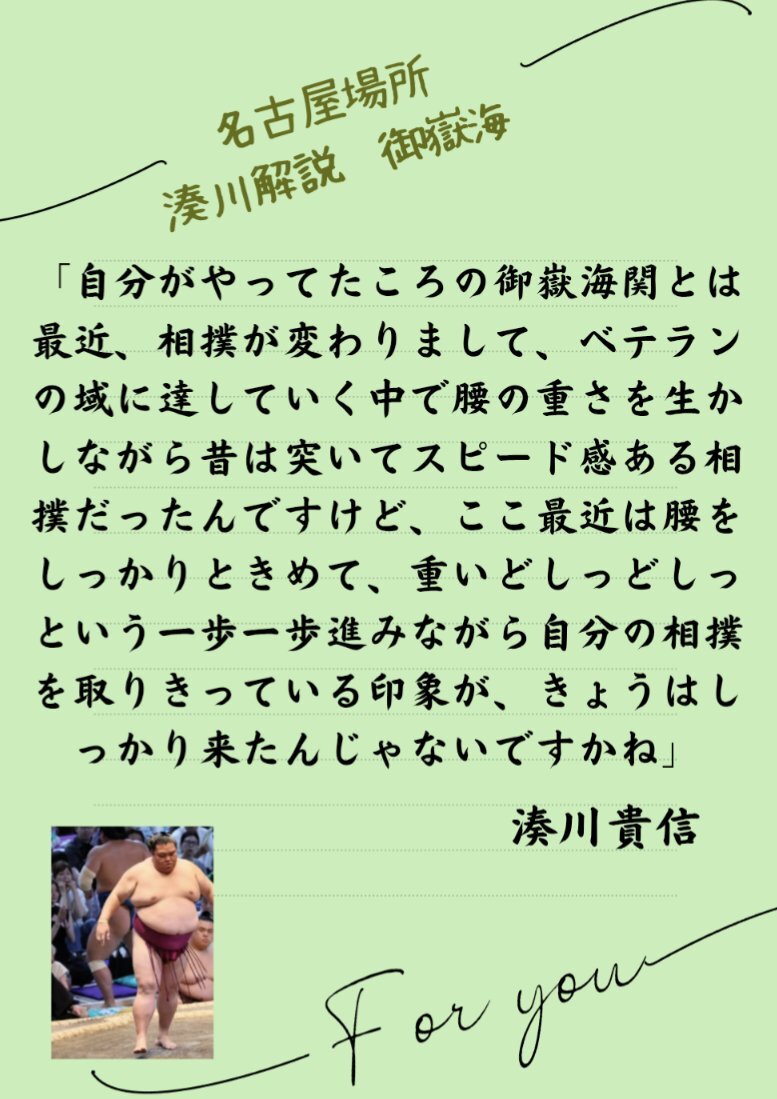 名古屋場所
湊川解説　御嶽海
「自分がやってたころの御嶽海関とは
最近、相撲が変わりまして、ベテラン
の域に達していく中で腰の重さを生か
しながら昔は突いてスピード感ある相
撲だったんですけど、ここ最近は腰を
しっかりときめて、重いどしっどしっ
という一歩一歩進みながら自分の相撲
を取りきっている印象が、きょうはし
っかり来たんじゃないですかね」
湊川貴信
For you